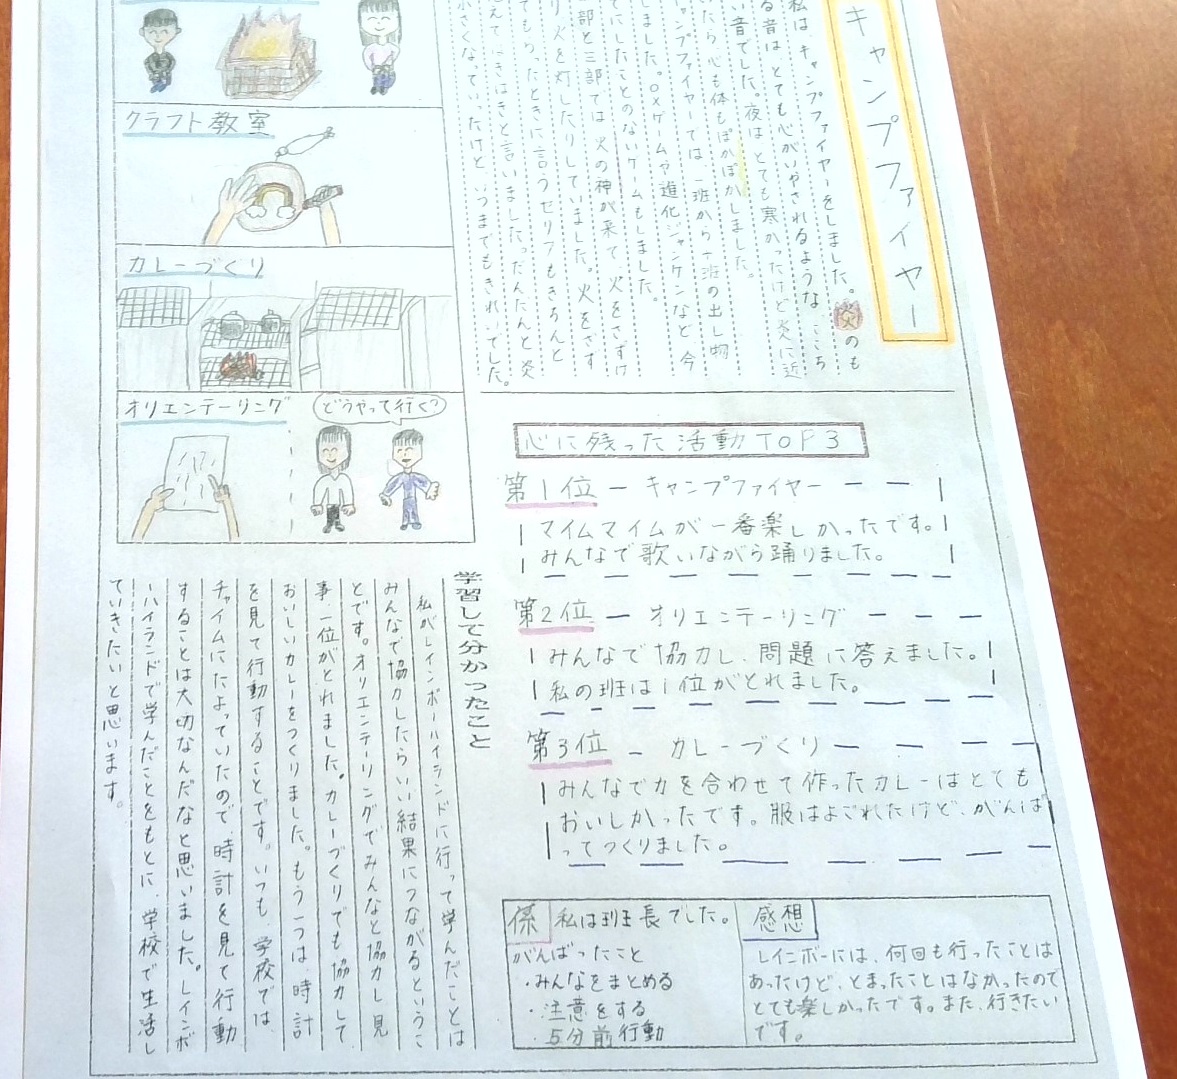 キャンプファイヤー
私は、キャンプファイヤーをしました。炎のも
る音は、とても心がいやされるような、ここち
い音でした。夜は、とても寒かったけど炎に近
いたら、心も体もぽかぽかしました。
ャンプファイヤーでは、一班から十班の出し物
しました。○×ゲームや進化ジャンケンなど、今
でにしたことのないゲームもしました。
部と三部では、火の神が来て、火をさずけ
り火を灯したりしていました。火をさず
てもらったときに言うセリフもきちんと
えてはきはきと言いました。だんだんと炎
小さくなっていったけど、いつまでもきれいでした。
クラフト教室
カレーづくり
オリエンテーリング
どうやって行く?
心に残った活動TOP3
第1位 キャンプファイヤー
マイムマイムが一番楽しかったです。
みんなで歌いながら踊りました。
第2位 オリエンテーリング
みんなで協力し、問題に答えました。
私の班は1位がとれました。
第3位 カレーづくり
みんなで力を合わせて作ったカレーはとても
おいしかったです。服はよごれたけど、がんば
ってつくりました。
係 私は班長でした。
がんばったこと
・みんなをまとめる
・注意をする
・5分前行動
感想
レインボーには、何回も行ったことは
あったけど、とまったことはなかったので
とても楽しかったです。また、行きたい
です。
学習して分かったこと
私がレインボーハイランドに行って学んだことは
みんなで協力したらいい結果につながるというこ
とです。オリエンテーリングでみんなと協力し、見
事、一位がとれました。カレーづくりでも協力して
おいしいカレーをつくりました。もう一つは、時計
を見て行動することです。いつも、学校では、
チャイムにたよっていたので、時計を見て行動
することは大切なんだなと思いました。レインボ
ーハイランドで学んだことをもとに、学校で生活し
ていきたいと思います。